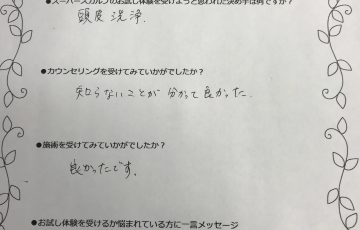 ●スーパースカルプのお試し体験を受けようと思われた決め手は何ですか?
頭皮洗浄.
●カウンセリングを受けてみていかがでしたか?
知らないことが分かって良かった.
●施術を受けてみていかがでしたか?
良かったです.
●お試し体験を受けるか悩まれている方に一言メッセージ